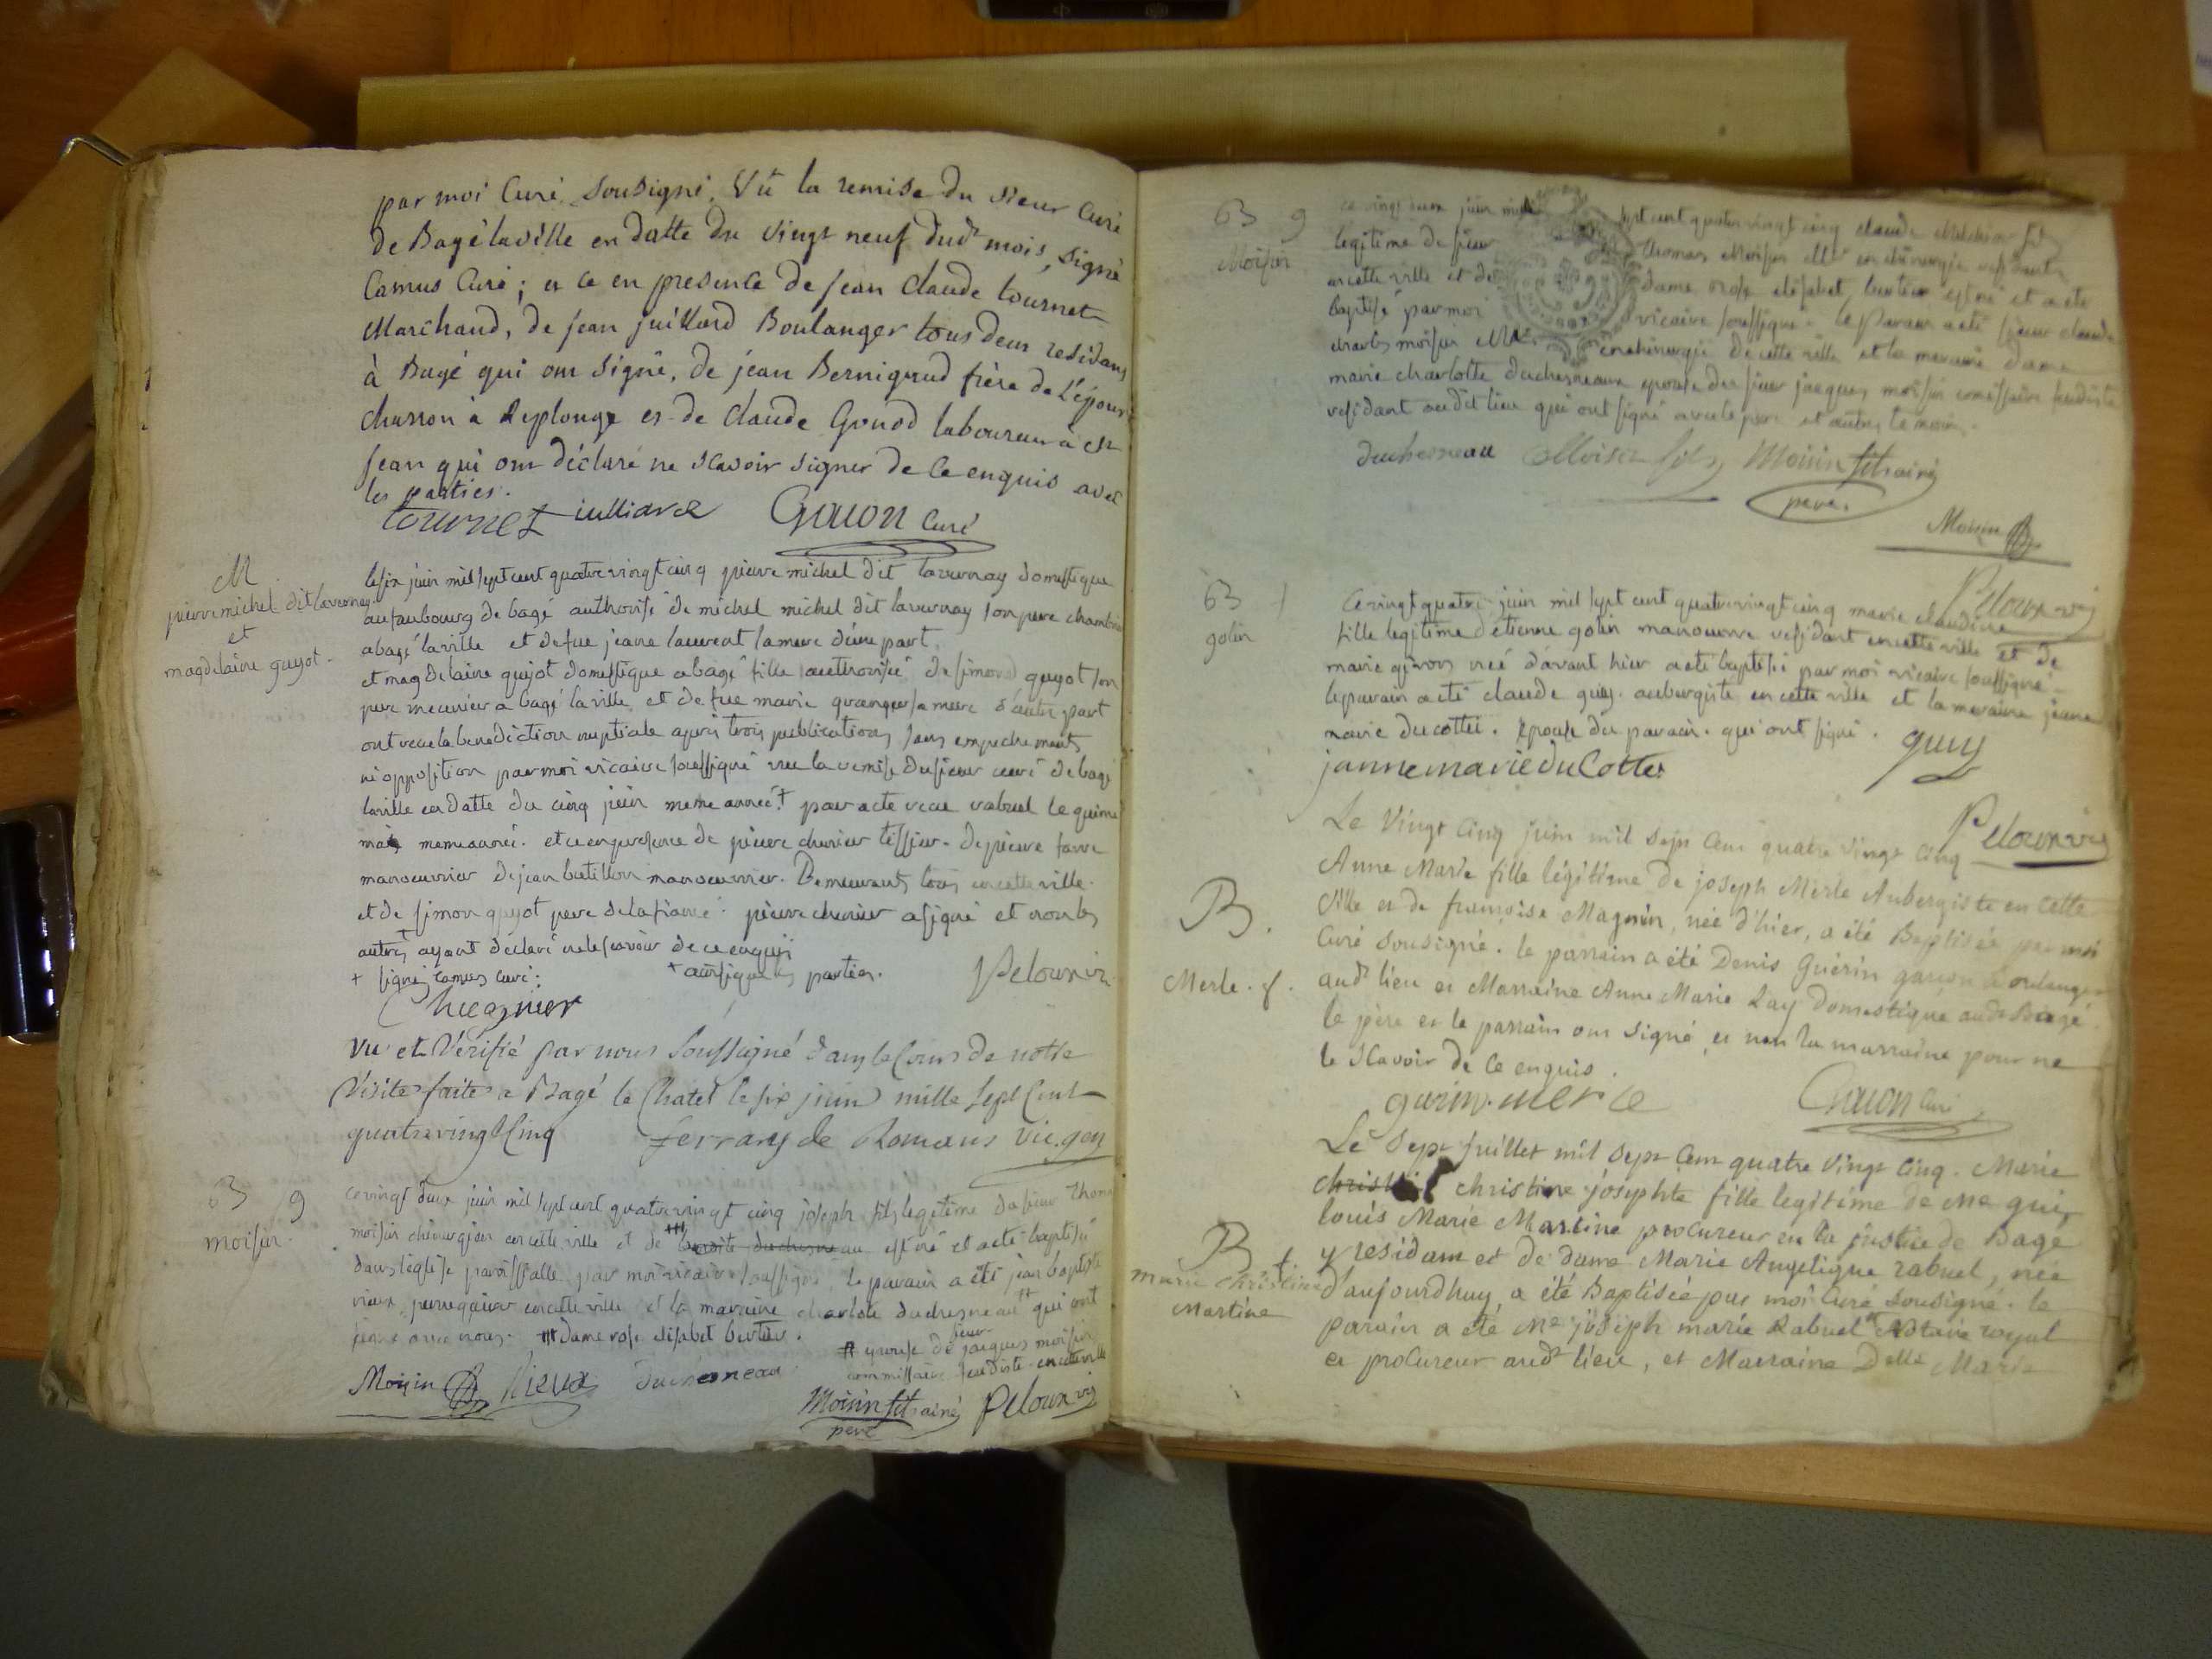 par moi Curé Sousigné. Vû la remise du Sieur Curé
de Bagé la ville en datte du vingt neuf dud. mois, signé
Camus Curé; et ce en presence de jean claude tournet
Marchand, de jean juillard Boulanger tous deux residans
à Bagé qui ont signé, de jean Bernigaud frère de l'époux
charron à Replonge et de claude Gonod laboureur à st
jean qui ont déclaré ne scavoir signer de ce enquis avec
les parties.
tournet iulliard Gouon Curé
M
pierre michel dit lavernay
et
magdelaine guyot
le six juin mil sept cent quatre vingt cinq pierre michel dit lavernay domestique
au faubourg de bagé authorisé de michel michel dit lavernay son pere
a bagé la ville et de fue jeane laurent la mere d'une part
et magdelaine guyot domestique a bagé fille authorisée de simond guyot son
pere meunier a bagé la ville et de fue marie granger sa mere d'autre part
ont recu la benediction nuptiale apres trois publications sans empechements
ni opposition par moi vicaire soussigné vue la remise du sieur curé de bagé
laville en datte du cinq juin meme année + par acte recu rabuel le quinze
mai meme année. et ce en presence de pierre chunier tissier. de pierre favre
manoeuvrier de jean butillon manoeuvrier. Demeurants tous en cette ville.
et de simon guyot pere de la fiancé. pierre chunier a signé et non les
autres ayant declaré ne le scavoir de ce enquis
+ signé camus curé. + ainsi que les parties. Peloux vic
Vu et Vérifié par nous Soussigné dans le Cours de notre
Visite faite a Bagé le Chatel le six juin mille Sept Cent
quatrevingt Cinq ferrary de Romans vic. gen
B 9
moisin
ce vingt deux juin mil sept cent quatre vingt cinq joseph fils legitime du sieur thomas
moisin chirurgien en cette ville et de est né et a eté baptisé
dans l'eglise paroissialle par moi vicaire soussigné le parain a eté jean baptiste
vieux perruquier en cette ville et la maraine charlote duchesneau qui ont
signé avec nous. dame rose elisabet bertier.
epouse de sieur jacques moisin
commissaire feudiste en cette ville
Moisin vieux duchesneau
Moisin fils ainé Peloux vic
pere
B 9
Moisin
ce vingt deux juin mil sept cent quatre vingt cinq claude melchior fils
legitime de sieur thomas Moisin Mtre en chirurgie residant
en cette ville et de dame rose elisabet bertier est né et a eté
baptisé par moi vicaire soussigné. le parain a eté sieur claude
charles moisin Mtre en chirurgie de cette ville et la maraine dame
marie charlotte duchesneau epouse du sieur jacques moisin commissaire feudiste
residant audit lieu qui ont signé avec le pere et autres temoins.
duchesneau Moisin fils Moisin fils ainé
pere.
Moisin
Peloux vic
B +
golin
ce vingt quatre juin mil sept cent quatre vingt cinq marie claudine
fille legitime d'etienne golin manoeuvre residant en cette ville et de
marie née d'avant hier a eté baptisée par moi vicaire soussigné
le parain a eté claude guy. aubergiste en cette ville et la maraine jeane
marie ducottet. epouse du parain. qui ont signé. guy
janne marie du Cottet
Peloux vic
B.
Merle. f.
Le Vingt Cinq juin mil Sept Cent quatre Vingt Cinq
Anne Marie fille légitime de joseph Merle Aubergiste en cette
Ville et de françoise Magnin, née d'hier, a été Baptisée par moi
Curé Sousigné. le parrain a été Denis Guérin garçon Boulanger
aud. lieu et Marraine Anne Marie Lay Domestique aud. Bagé
le père et le parrain ont signé, et non la marraine pour ne
le Scavoir de ce enquis.
guirin. merle Gouon Curé
B +
marie christine
Martine
Le Sept Juillet mil Sept Cent quatre Vingt Cinq. Marie
christine josephte fille legitime de Me guy
louis Marie Martine procureur en la justice de Bagé
y residant et de dame Marie Angelique rabuel, née
d'aujourdhuy, a été Baptisée par moi Curé Sousigné. le
parain a eté Me joseph marie Rabuel Notaire royal
et procureur aud. lieu, et Marraine Dlle Marie